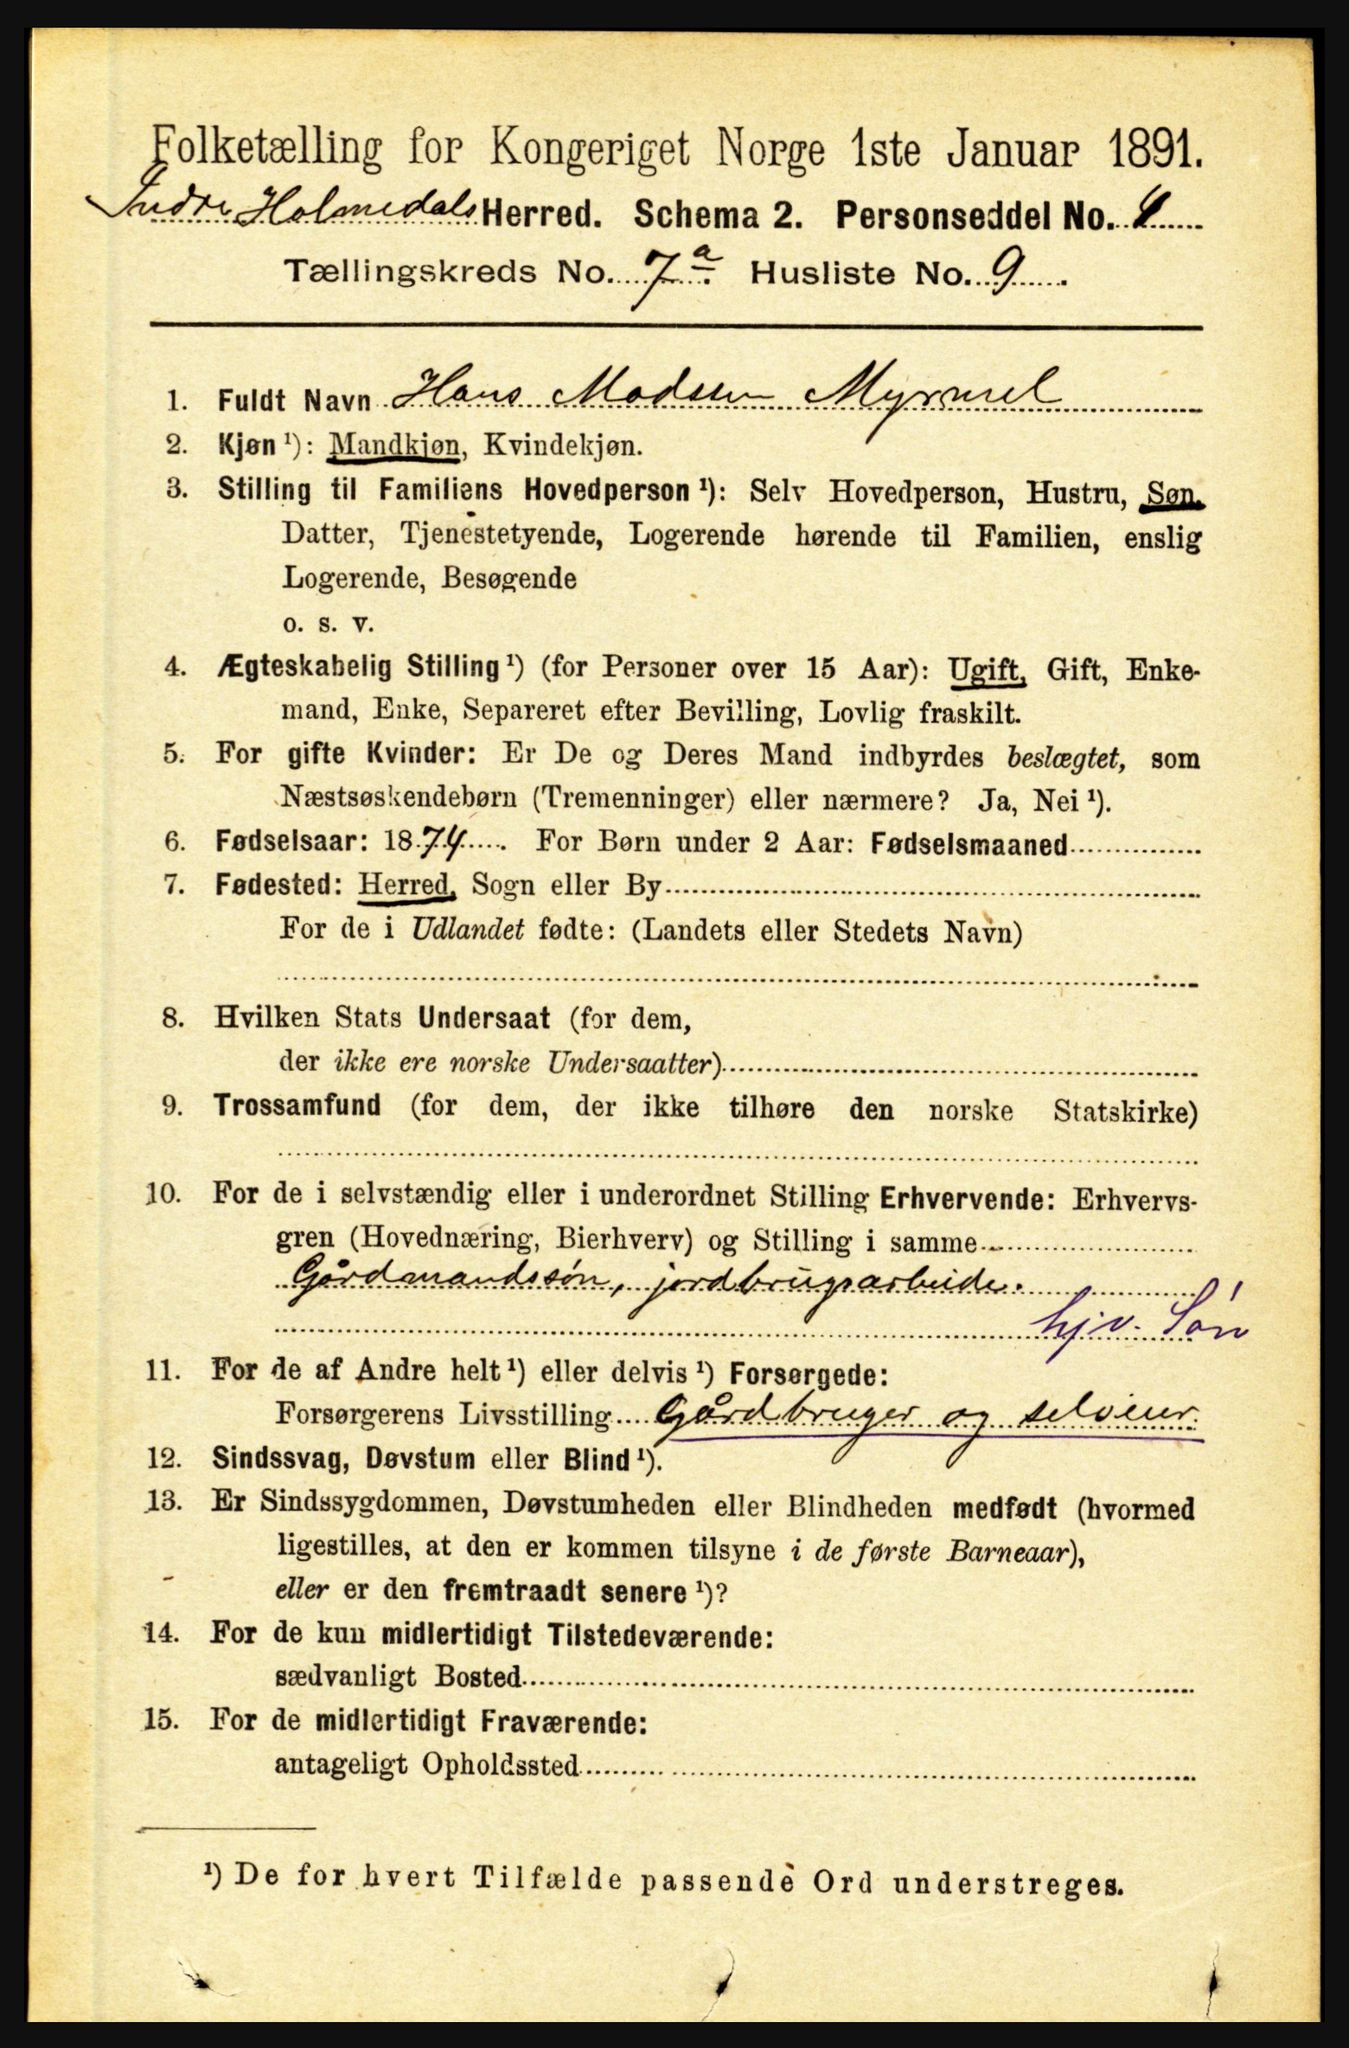 Folketælling for Kongeriget Norge 1ste Januar 1891.
Indre Holmedals Herred. Schema 2. Personseddel No. 4
Tællingskreds No. 7a. Husliste No. 9.
1. Fuldt Navn Hans Madsen Myrmel
2. Kjøn¹): Mandkjøn, Kvindekjøn.
3. Stilling til Familiens Hovedperson¹): Selv Hovedperson, Hustru, Søn,
Datter, Tjenestetyende, Logerende hørende til Familien, enslig
Logerende, Besøgende
o. s. v.
4. Ægteskabelig Stilling¹) (for Personer over 15 Aar): Ugift, Gift, Enke-
mand, Enke, Separeret efter Bevilling, Lovlig fraskilt.
5. For gifte Kvinder: Er De og Deres Mand indbyrdes beslægtet, som
Næstsøskendebørn (Tremenninger) eller nærmere? Ja, Nei¹).
6. Fødselsaar: 1874. For Børn under 2 Aar: Fødselsmaaned
7. Fødested: Herred, Sogn eller By
For de i Udlandet fødte: (Landets eller Stedets Navn)
8. Hvilken Stats Undersaat (for dem,
der ikke ere norske Undersaatter)
9. Trossamfund (for dem, der ikke tilhøre den norske Statskirke)
10. For de i selvstændig eller i underordnet Stilling Erhvervende: Erhvervs-
gren (Hovednæring, Bierhverv) og Stilling i samme
Gårdmandssøn, jordbrugsarbeide.
hjv. Søn
11. For de af Andre helt¹) eller delvis¹) Forsørgede:
Forsørgerens Livsstilling Gårdbruger og selveier.
12. Sindssvag, Døvstum eller Blind¹).
13. Er Sindssygdommen, Døvstumheden eller Blindheden medfødt (hvormed
ligestilles, at den er kommen tilsyne i de første Barneaar),
eller er den fremtraadt senere¹)?
14. For de kun midlertidigt Tilstedeværende:
sædvanligt Bosted
15. For de midlertidigt Fraværende:
antageligt Opholdssted
¹) De for hvert Tilfælde passende Ord understreges.